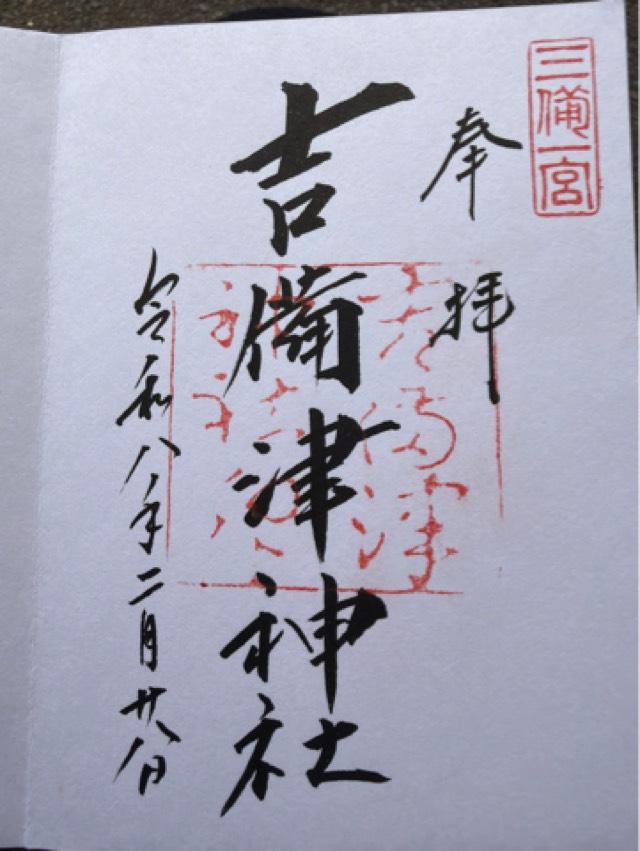 三備一宮
奉拝
吉備津神社
令和八年二月廿八日